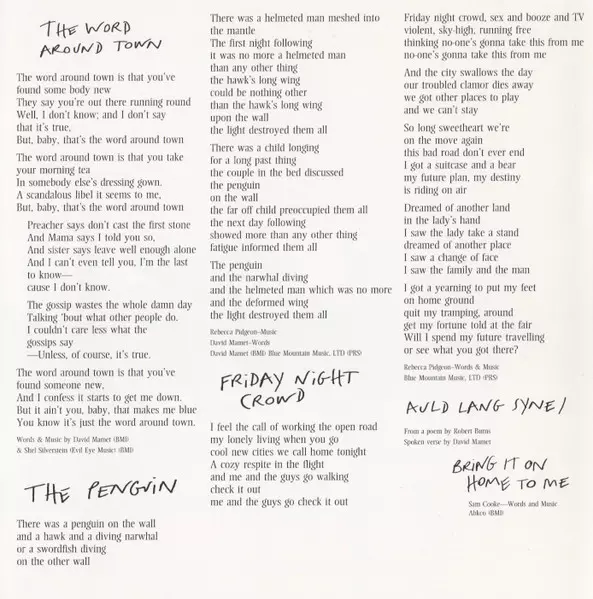 THE WORD
AROUND TOWN
The word around town is that you've
found some body new
They say you're out there running round
Well, I don't know; and I don't say
that it's true,
But, baby, that's the word around town
The word around town is that you take
your morning tea
In somebody else's dressing gown.
A scandalous libel it seems to me,
But, baby, that's the word around town
Preacher says don't cast the first stone
And Mama says I told you so,
And sister says leave well enough alone
And I can't even tell you, I'm the last
to know—
cause I don't know.
The gossip wastes the whole damn day
Talking 'bout what other people do.
I couldn't care less what the
gossips say
—Unless, of course, it's true.
The word around town is that you've
found someone new,
And I confess it starts to get me down.
But it ain't you, baby, that makes me blue
You know it's just the word around town.
Words & Music by David Mamet (BMI)
& Shel Silverstein (Evil Eye Music) (BMI)
THE PENGUIN
There was a penguin on the wall
and a hawk and a diving narwhal
or a swordfish diving
on the other wall
There was a helmeted man meshed into
the mantle
The first night following
it was no more a helmeted man
than any other thing
the hawk's long wing
could be nothing other
than the hawk's long wing
upon the wall
the light destroyed them all
There was a child longing
for a long past thing
the couple in the bed discussed
the penguin
on the wall
the far off child preoccupied them all
the next day following
showed more than any other thing
fatigue informed them all
The penguin
and the narwhal diving
and the helmeted man which was no more
and the deformed wing
the light destroyed them all
Rebecca Pidgeon–Music
David Mamet–Words
David Mamet (BMI) Blue Mountain Music, LTD (PRS)
FRIDAY NIGHT
CROWD
I feel the call of working the open road
my lonely living when you go
cool new cities we call home tonight
A cozy respite in the flight
and me and the guys go walking
check it out
me and the guys go check it out
Friday night crowd, sex and booze and TV
violent, sky-high, running free
thinking no-one's gonna take this from me
no-one's gonna take this from me
And the city swallows the day
our troubled clamor dies away
we got other places to play
and we can't stay
So long sweetheart we're
on the move again
this bad road don't ever end
I got a suitcase and a bear
my future plan, my destiny
is riding on air
Dreamed of another land
in the lady's hand
I saw the lady take a stand
dreamed of another place
I saw a change of face
I saw the family and the man
I got a yearning to put my feet
on home ground
quit my tramping, around
get my fortune told at the fair
Will I spend my future travelling
or see what you got there?
Rebecca Pidgeon–Words & Music
Blue Mountain Music, LTD (PRS)
AULD LANG SYNE/
From a poem by Robert Burns
Spoken verse by David Mamet
BRING IT ON
HOME TO ME
Sam Cooke—Words and Music
Abkco (BMI)